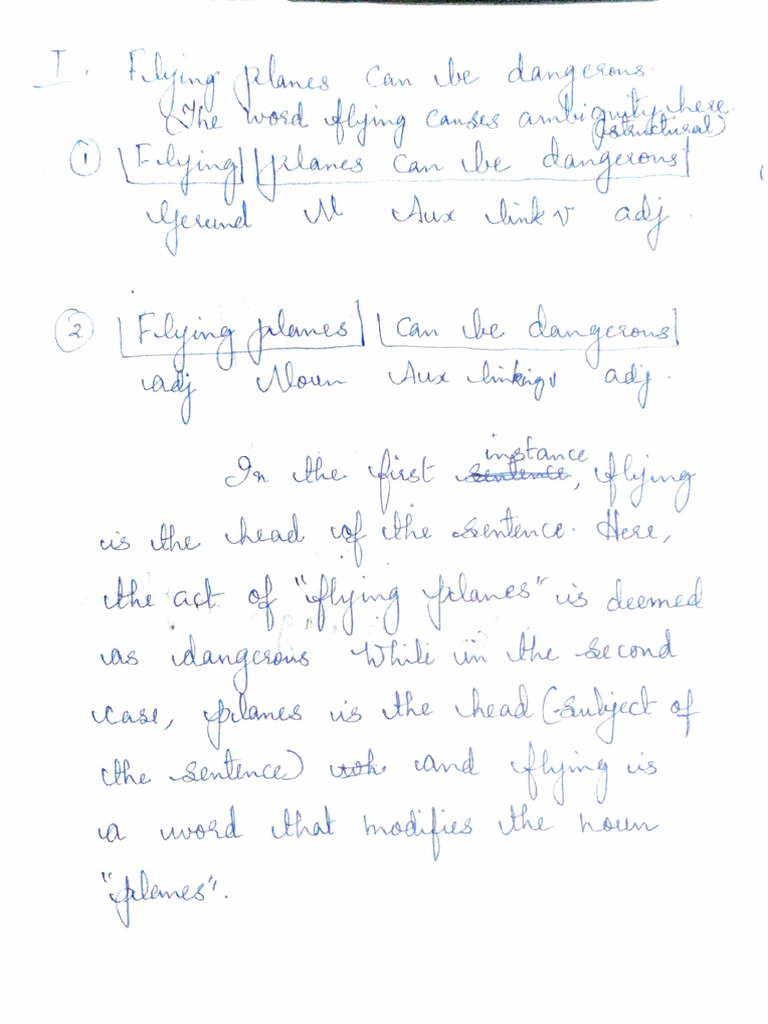 I. Flying planes can be dangerous.
(The word flying causes ambiguity here.
(structural)
① [Flying] [planes can be dangerous]
Gerund N Aux link v adj.
② [Flying planes] [can be dangerous]
adj Noun Aux linking v adj.
instance
In the first sentence, flying
is the head of the sentence. Here,
the act of "flying planes" is deemed
as dangerous While in the second
case, planes is the head (subject of
the sentence) and flying is
a word that modifies the noun
"planes".